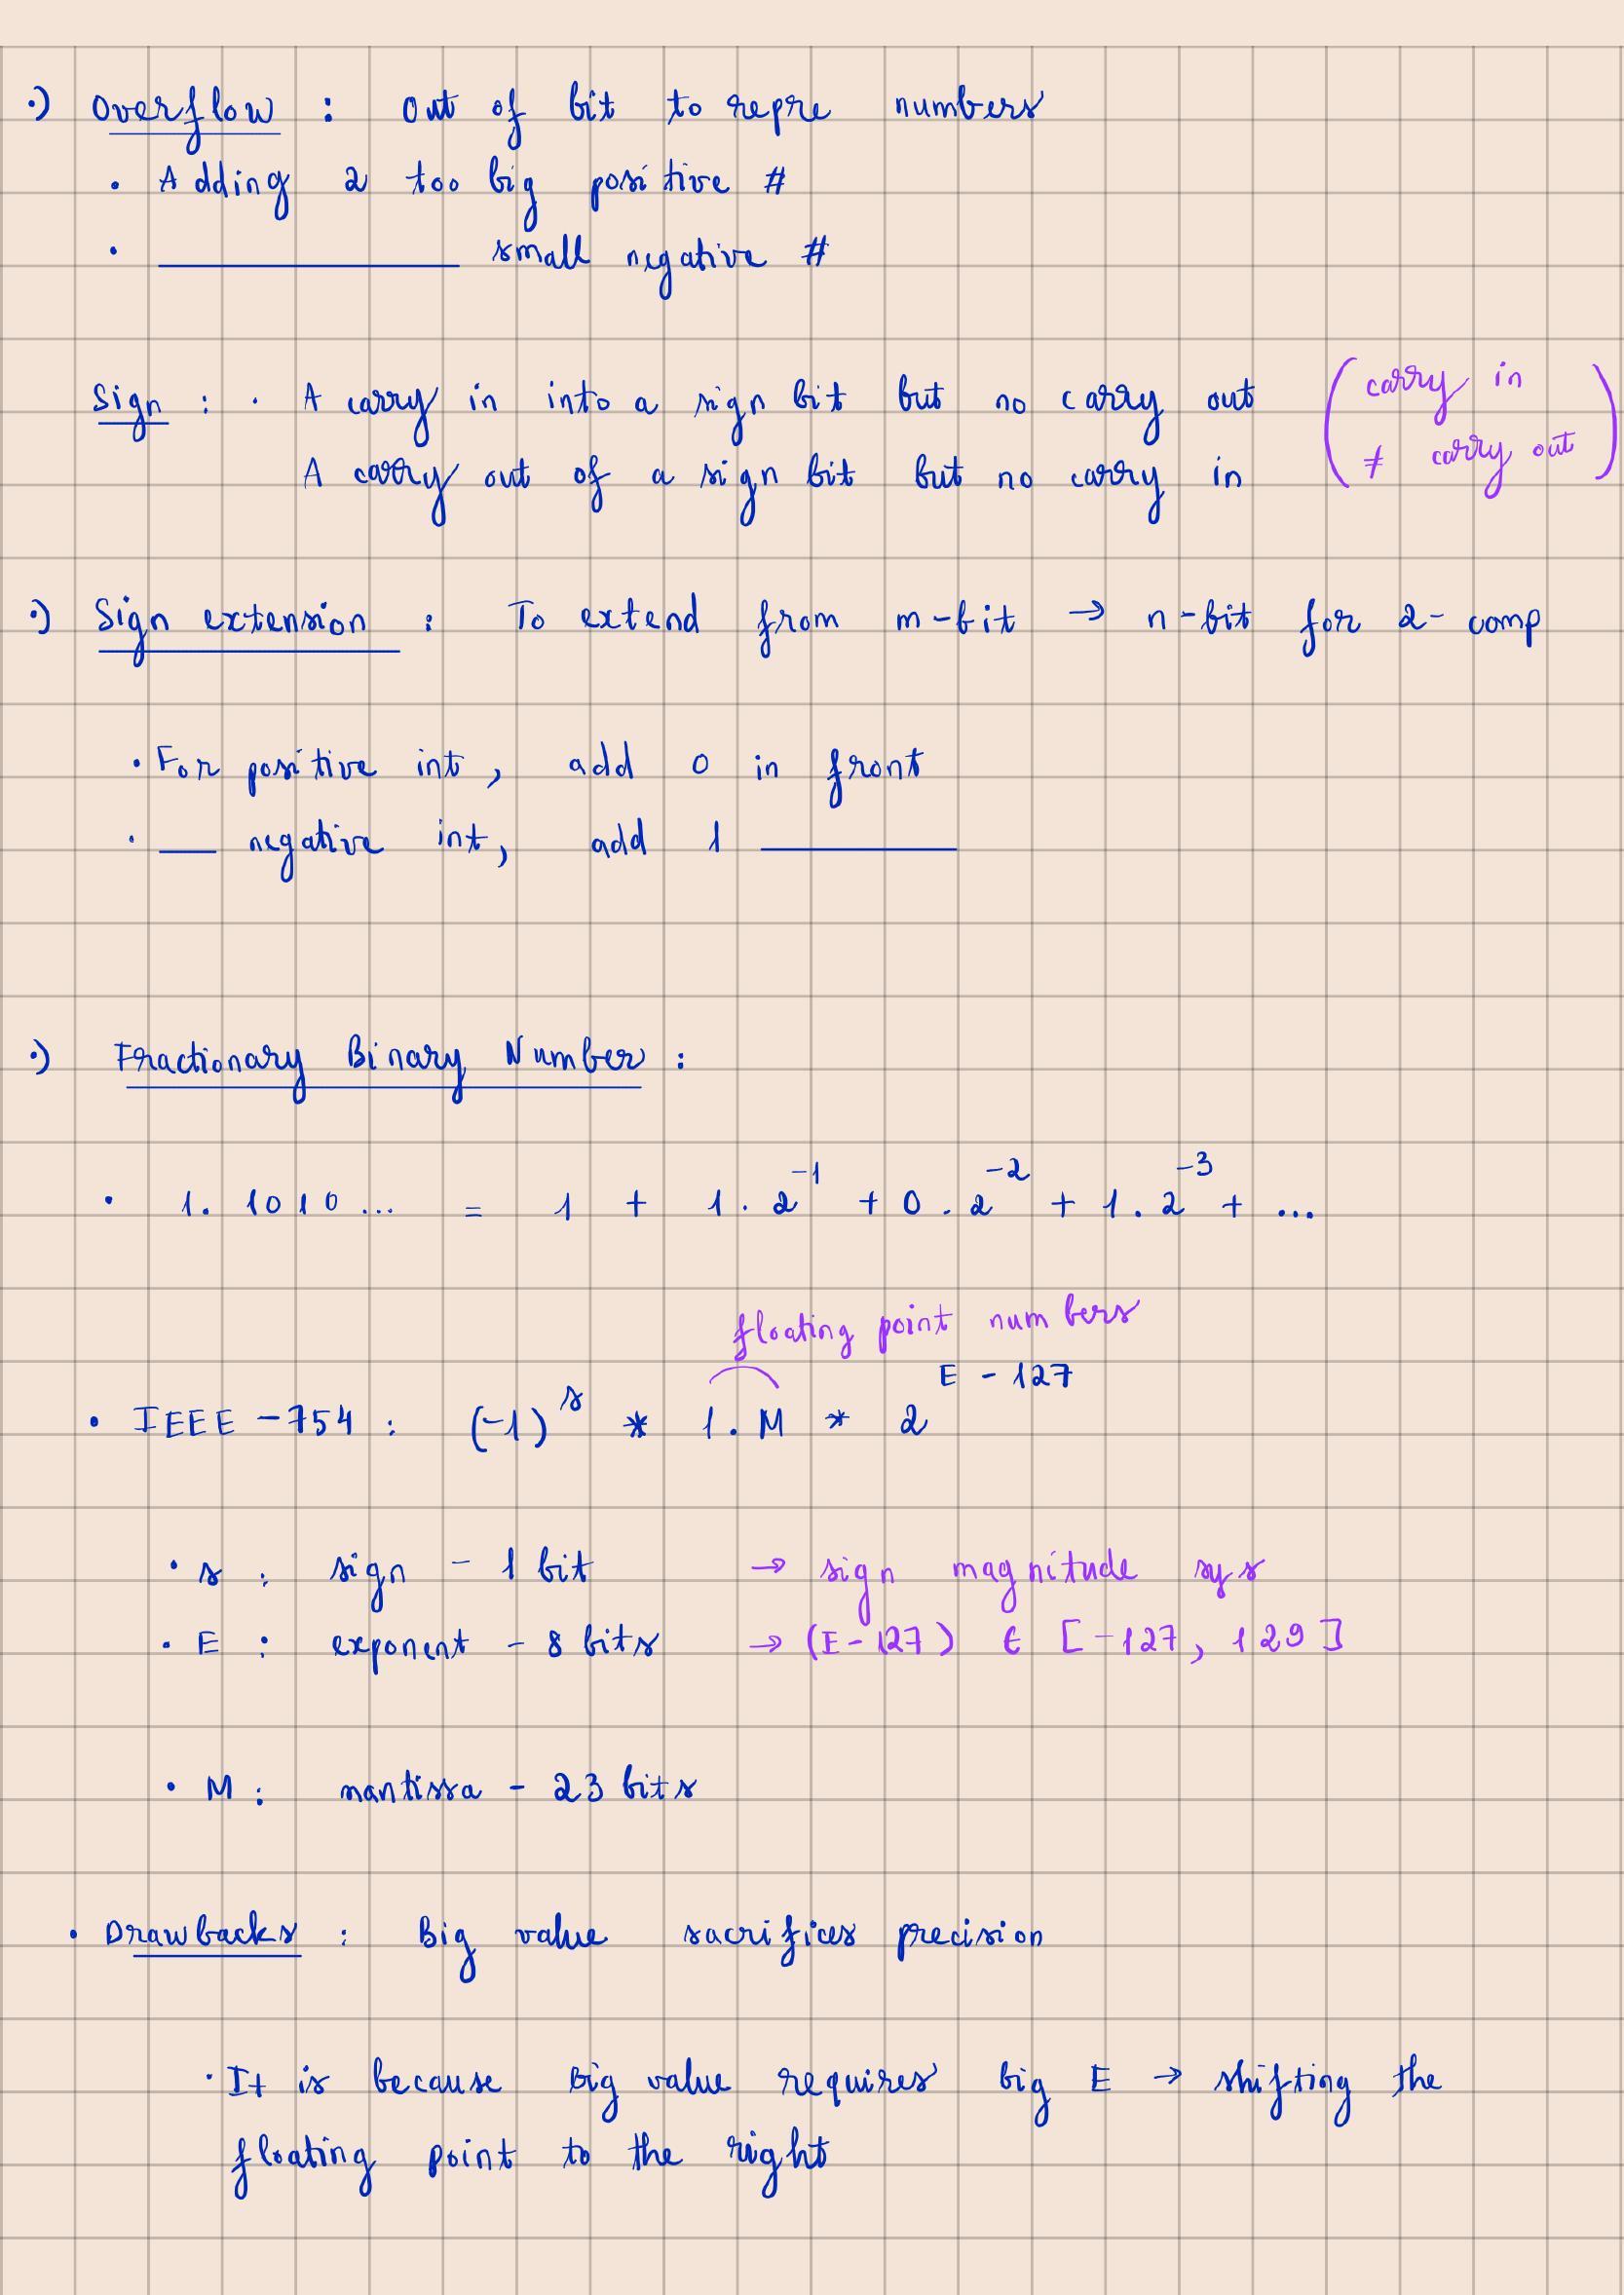 •) Overflow : Out of bit to repre numbers
• Adding 2 too big positive #
• ________ small negative #
Sign : • A carry in into a sign bit but no carry out (carry in
A carry out of a sign bit but no carry in ≠ carry out)
•) Sign extension : To extend from m-bit → n-bit for 2-comp
• For positive int, add 0 in front
• __ negative int, add 1 ______
•) Fractionary Binary Number :
• 1.1010... = 1 + 1.2^-1 + 0.2^-2 + 1.2^-3 + ...
floating point numbers
• IEEE-754 : (-1)^s * 1.M * 2^E-127
• s : sign - 1 bit → sign magnitude sys
• E : exponent - 8 bits → (E-127) ∈ [-127, 129]
• M : mantissa - 23 bits
• Drawbacks : Big value sacrifices precision
• It is because big value requires big E → shifting the
floating point to the right